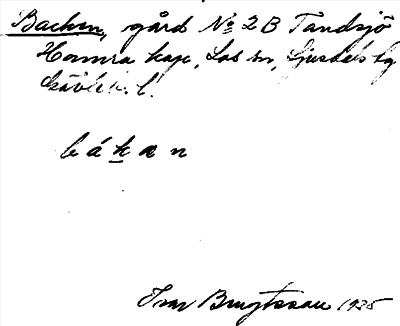 Backen, gård No 2 B Tandsjö
Hamra kap, Los sn, Ljusdals tg
Gävleb. l.
bákan
Ivar Bengtsson 1935